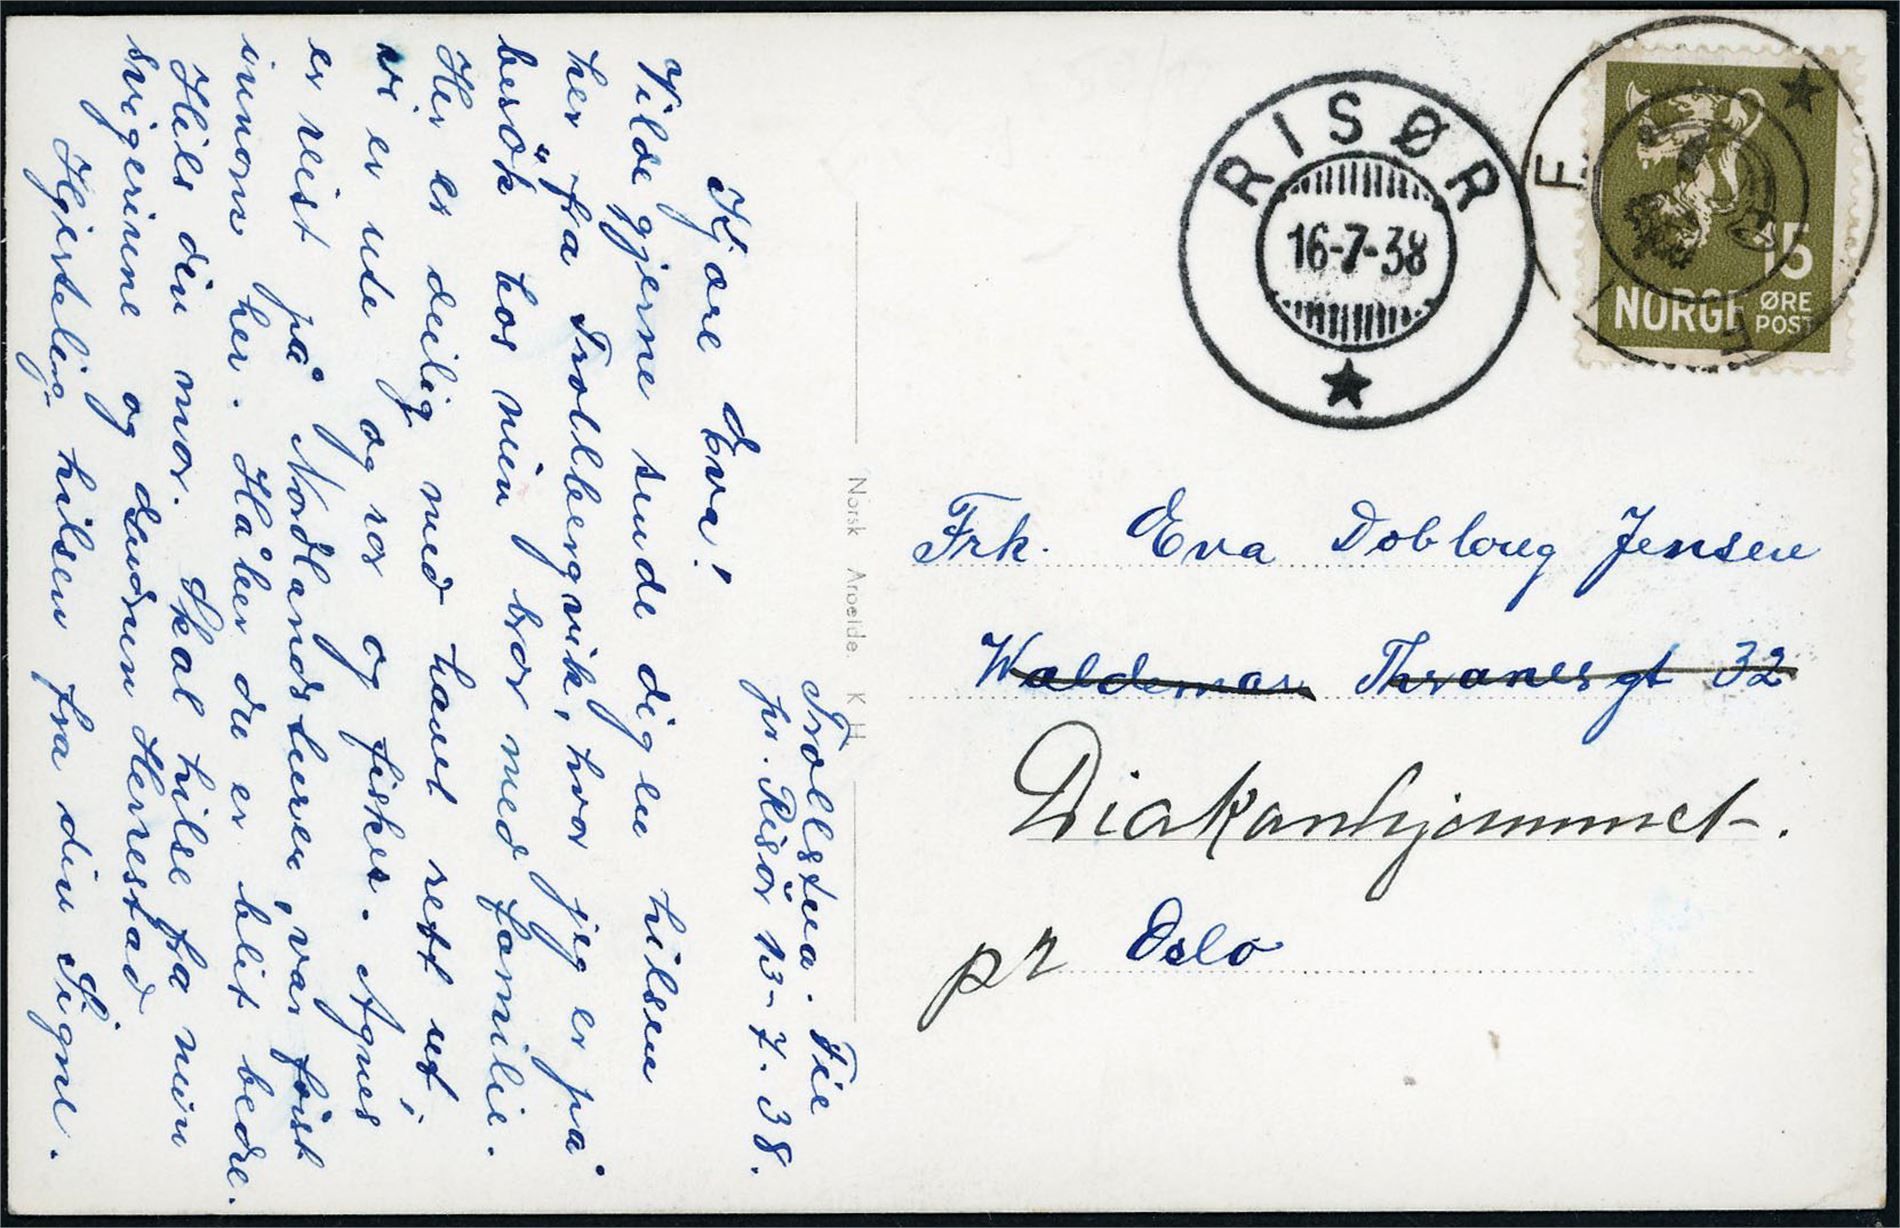 Trollstua. Fie
pr. Risör 13-7. 38.
Kjære Eva!
Vilde gjerne sende dig en hilsen
her fra Trollbergvik, hvor jeg er på
besök hos min bror med familie.
Her er deilig med havet rett ut,
vi er ute og ror og fisker. Agnes
er reist på Nordlandsturen, var först
innom her. Håber du er blit bedre.
Hils din mor. Skal hilse fra min
svigerinne og Herrestad
Hjertelig hilsen fra din Signe.
Norsk Arbeide. K H
RISØR
16-7-38
F
E
15
NORGE
ØRE
POST
Frk. Eva Dobloug Jensen
Waldemar Thranes gt 32
Diakonhjemmet.
pr Oslo